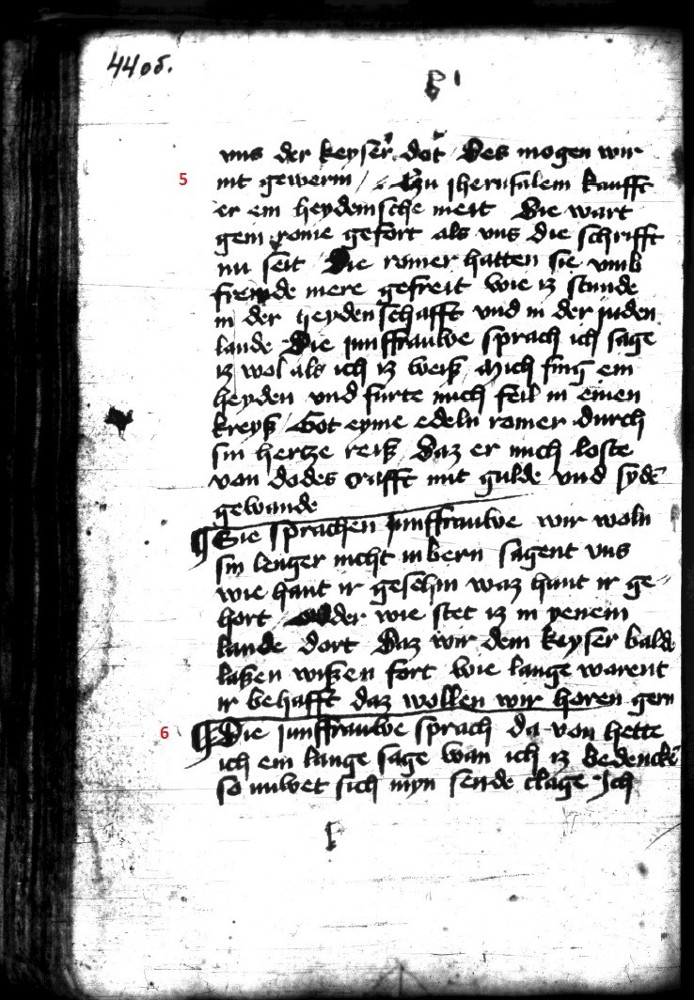 44 05.
uns der keyser dot Des mogen wir
5 nit gewern / Zu jherusalem kaufft
er ein heydensche meit Die wart
gein rome gefort als uns die schrifft
nu seit Die romer hatten sie umb
fremde mere gefreit wie iz stunde
in der heydenschafft und in der juden
lande Die junffrauwe sprach ich sage
iz wol als ich iz weiß Mich fing ein
heyden und furte mich feil in einen
kreyß / Got eyme edeln romer durch
sin hertze reiß Daz er mich loste
von dodes crafft mit gulde und syde
gewande
¶ Sie sprachen junffrauwe wir woln
sin lenger nicht inbern sagent uns
wie hant ir gesehin waz hant ir ge-
hort oder wie stet iz in yenem
lande dort Daz wir dem keyser bald
laßen wißen fort Wie lange warent
ir behafft daz wollen wir horen gern
6 ¶ Die junffrauwe sprach da von hette
ich ein lange sage wan ich iz bedencke
so nuwet sich myn sende clage Ich